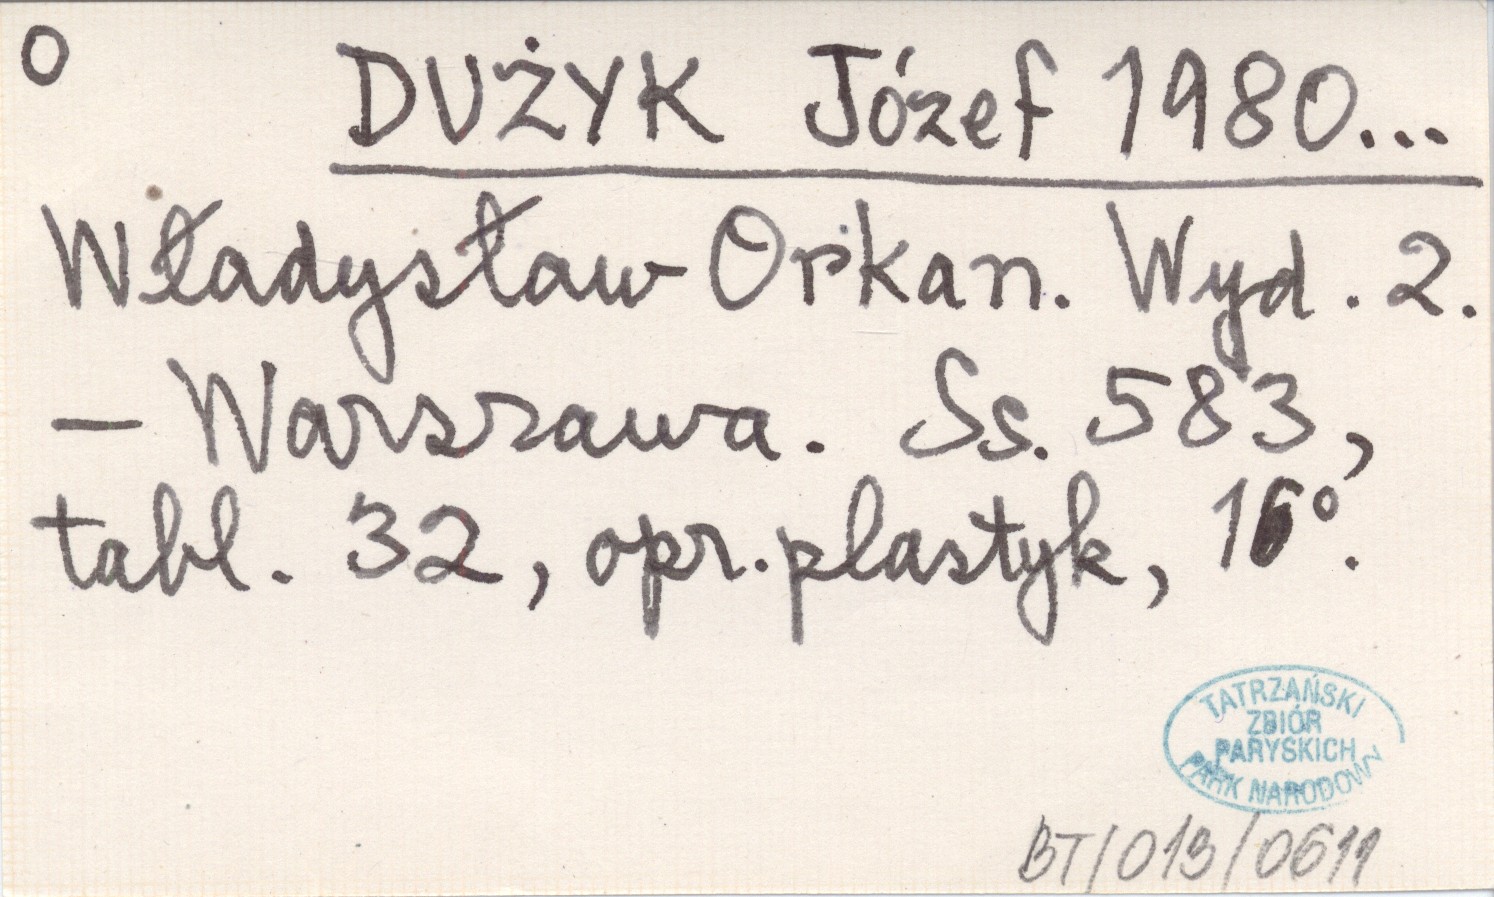 O
DUŻYK Józef 1980...
Władysław Orkan. Wyd. 2.
— Warszawa. Ss. 583,
tabl. 32, opr. plastyk, 16°.
TATRZAŃSKI
ZBIÓR
PARYSKICH
PARK NARODOWY
BT/013/0611